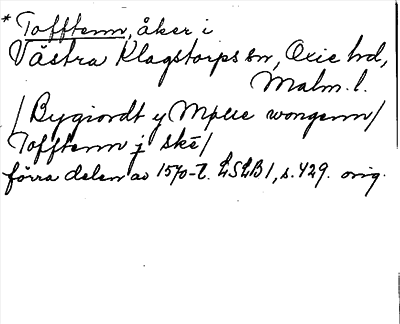 * Tofftenn, åker i
Västra Klagstorps sn, Oxie hd,
Malm. l.
/ Bygiordt y Mølle wongenn/
Tofftenn j ské/
förra delen av 1570-t. LSLB 1, s. 429. orig.